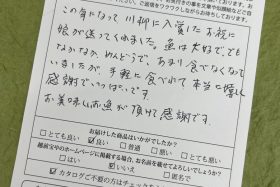 この年になって川柳に入賞したお祝に
娘が送ってくれました。魚は大好ででも
なかなかめんどうで、あまり食べなくなって
いましたが、手軽に食べれて本当に嬉しく
感謝でいっぱいです。
お美味しいお魚が頂けて感謝です。
お届けした商品はいかがでしたか？
□とても良い ☑良い □普通 □悪い □とても悪い
越前宝やのホームページに掲載する場合、お名前を載せてよろしいでしょうか？
□はい ☑いいえ □匿名で
☑カタログご不要の方はチェックを